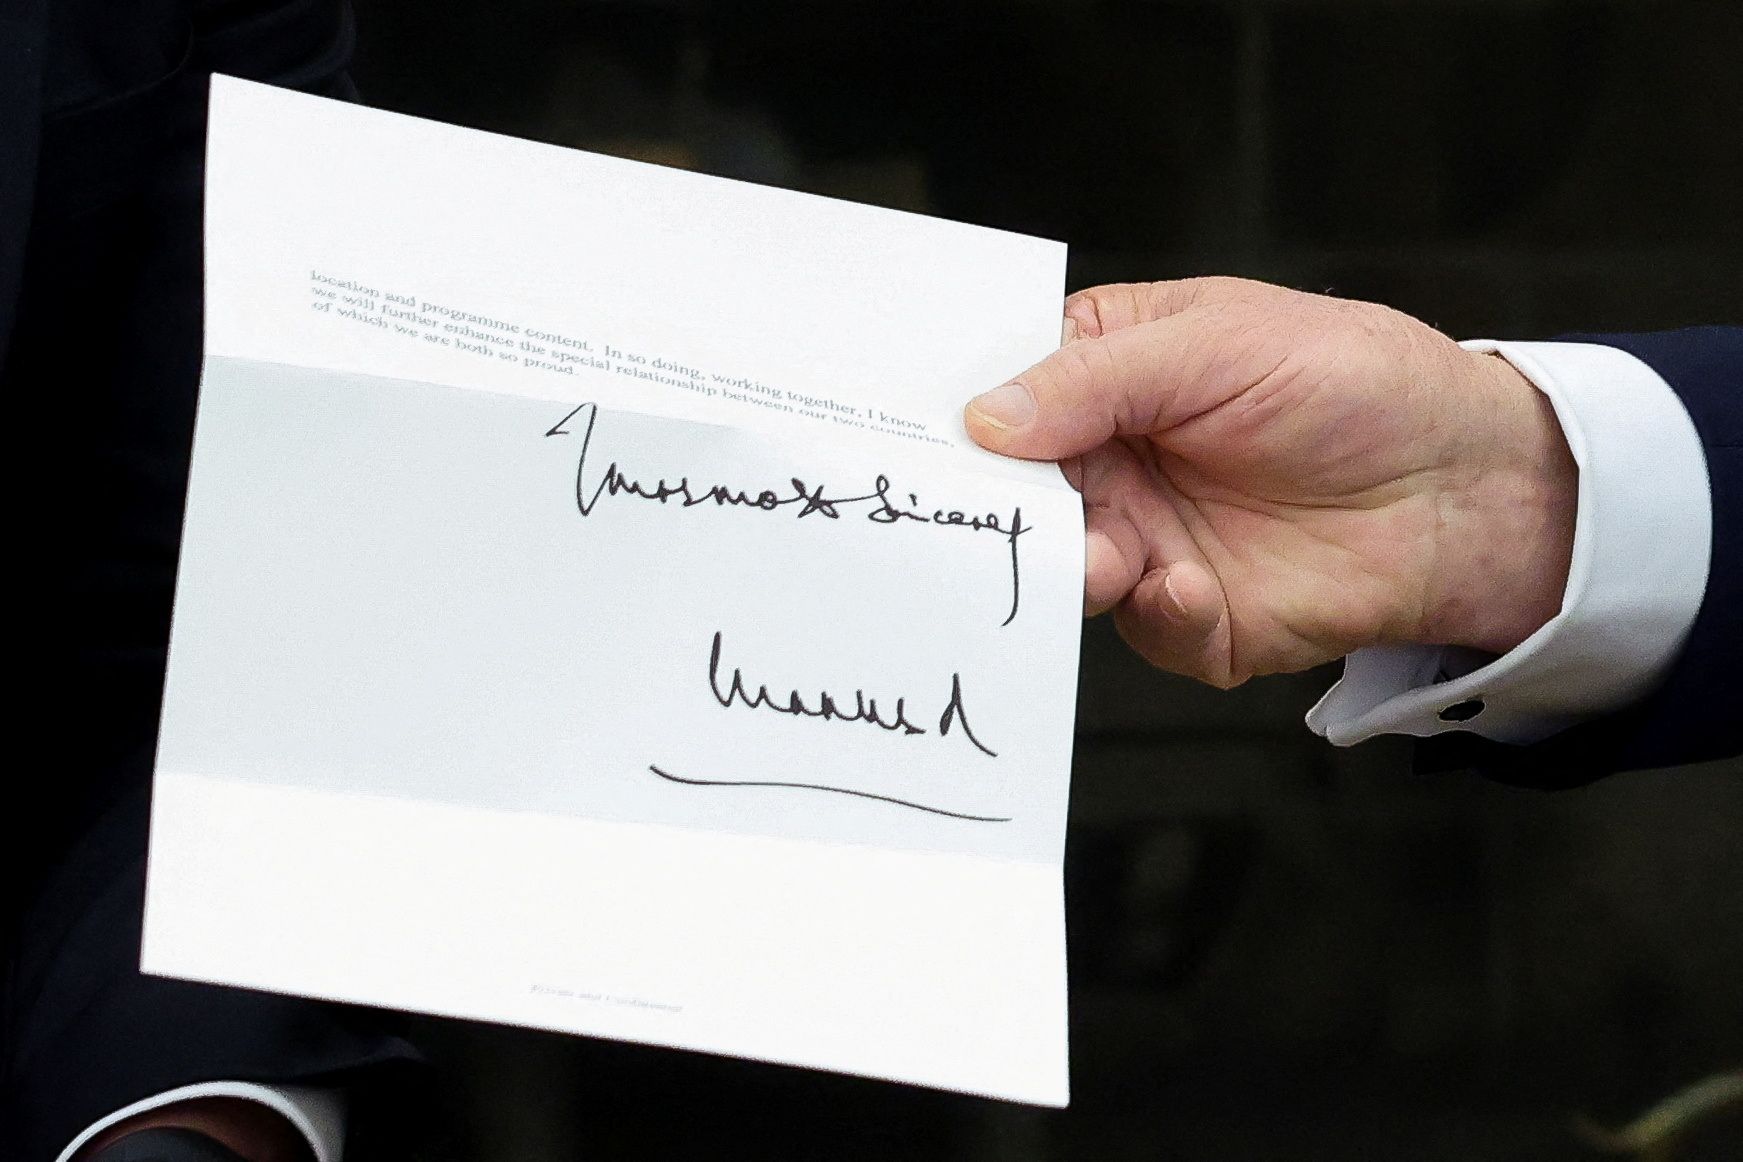 location and programme content. In so doing, working together, I know
we will further enhance the special relationship between our two countries,
of which we are both so proud.
Yours most Sincerely
Private and Confidential